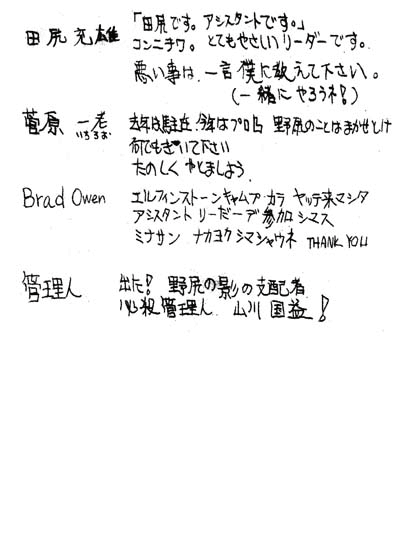 「田尻です。アシスタントです。」
田尻 充雄 コンニチワ。とてもやさしいリーダーです。
悪い事は、一言僕に教えて下さい。
(一緒にやろうネ!)
菅原 一老 去年は駐在、今年はプロ 野尻のことはまかせとけ
何でもきいて下さい
たのしく やりましょう。
Brad Owen エルフィンストーンキャムプ カラ ヤッテ来マシタ
アシスタント リーダーデ 参加シマス
ミナサン ナカヨクシマショウネ THANK YOU
管理人 出た! 野尻の影の支配者
必殺管理人 山川 国益!